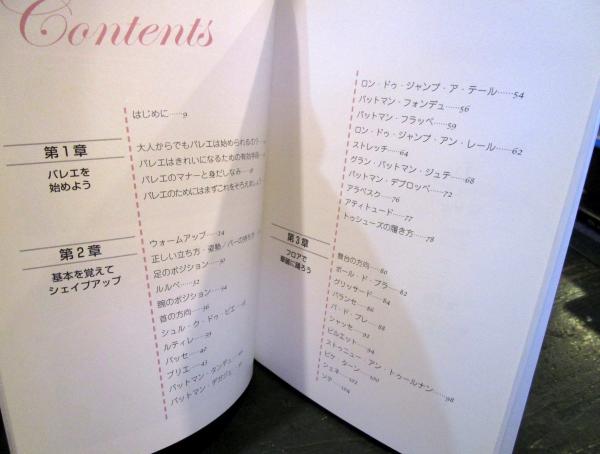 Contents
はじめに……9
第1章
バレエを
始めよう
大人からでもバレエは始められるの？
バレエはきれいになるための有効手段
バレエのマナーと身だしなみ
バレエのためにはまずこれをそろえましょう
第2章
基本を覚えて
シェイプアップ
ウォームアップ……24
正しい立ち方・姿勢／バーの持ち方
足のポジション……30
ルルベ……32
腕のポジション……34
首の方向……36
シュル・ク・ドゥ・ピエ
ルティレ……39
パッセ……40
プリエ……43
バットマン・タンデュ
バットマン・デガジェ
ロン・ドゥ・ジャンブ・ア・テール……54
バットマン・フォンデュ……56
バットマン・フラッペ……59
ロン・ドゥ・ジャンブ・アン・レール……62
ストレッチ……64
グラン・バットマン・ジュテ……68
バットマン・デブロッペ……72
アラベスク……76
アティテュード……77
トゥシューズの履き方……78
第3章
フロアで
華麗に踊ろう
舞台の方向……80
ポール・ド・ブラ……82
グリッサード……84
バランセ……86
パ・ド・ブレ……88
シャッセ……92
ピルエット……94
ストゥニュー・アン・トゥールナン……98
ピケ・ターン……100
シェネ……102
ソテ……104